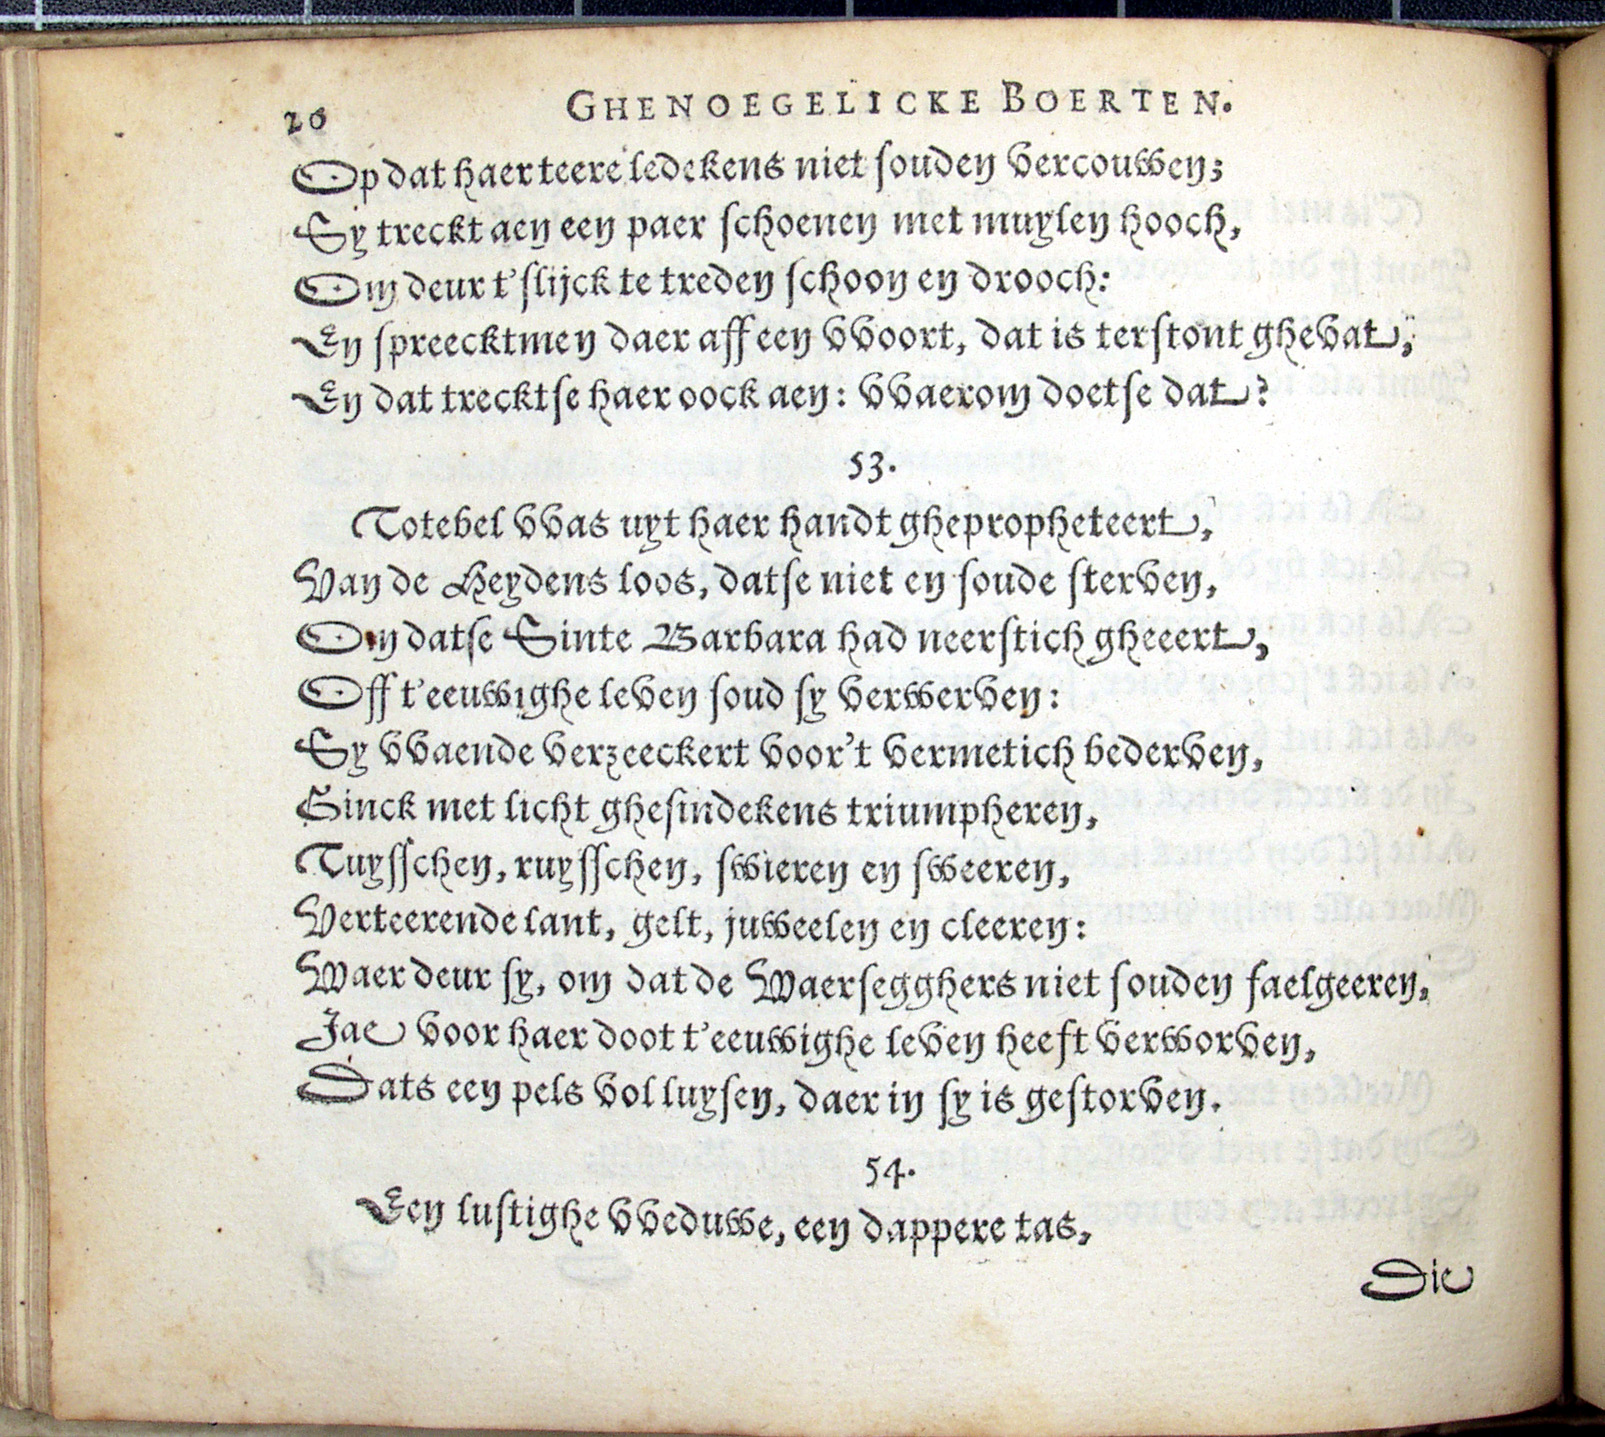 20 GHENOEGELICKE BOERTEN.
Op dat haer teere ledekens niet souden vercouwen;
Sy treckt aen een paer schoenen met muylen hooch,
Om deur t'slijck te treden schoon en drooch:
En spreecktmen daer aff een vvoort, dat is terstont ghevat,
En dat trecktse haer oock aen: vvaerom doetse dat?
53.
Totebel vvas uyt haer handt ghepropheteert,
Van de Heydens loos, datse niet en soude sterven,
Om datse Sinte Barbara had neerstich gheeert,
Off t'eeuwighe leven soud sy verwerven:
Sy vvaende verzeeckert voor't vermetich bederven,
Ginck met licht ghesindekens triumpheren,
Tuysschen, ruysschen, swieren en sweeren,
Verteerende lant, gelt, juweelen en cleeren:
Waer deur sy, om dat de Waersegghers niet souden faelgeeren,
Jae voor haer doot t'eeuwighe leven heeft verworven,
Dats een pels vol luysen, daer in sy is gestorven.
54.
Een lustighe vveduwe, een dappere tas,
Die